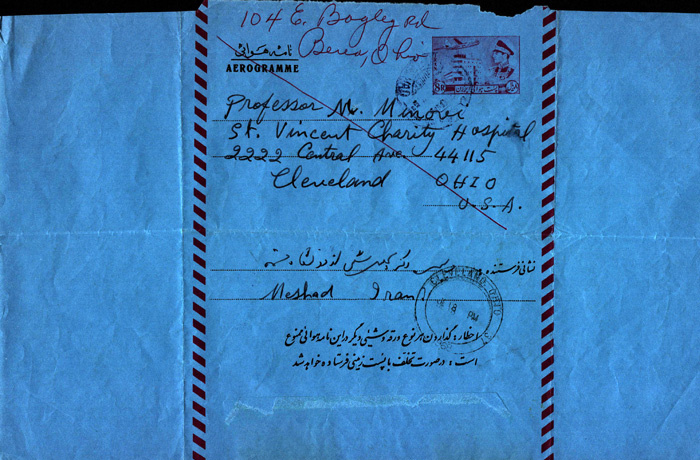 104 E. Bagley Rd
Berea, Ohio
نامه هوائی
AEROGRAMME
8R
Professor M. Minovi
St. Vincent Charity Hospital
2222 Central Ave. 44115
Cleveland OHIO
U.S.A.
نشانی فرستنده
Meshad Iran
CLEVELAND, OHIO
PM
اخطار: گذاردن هر نوع ورقه و شیئی دیگر در این نامه هوائی ممنوع
است: در صورت تخلف با پست زمینی فرستاده خواهد شد